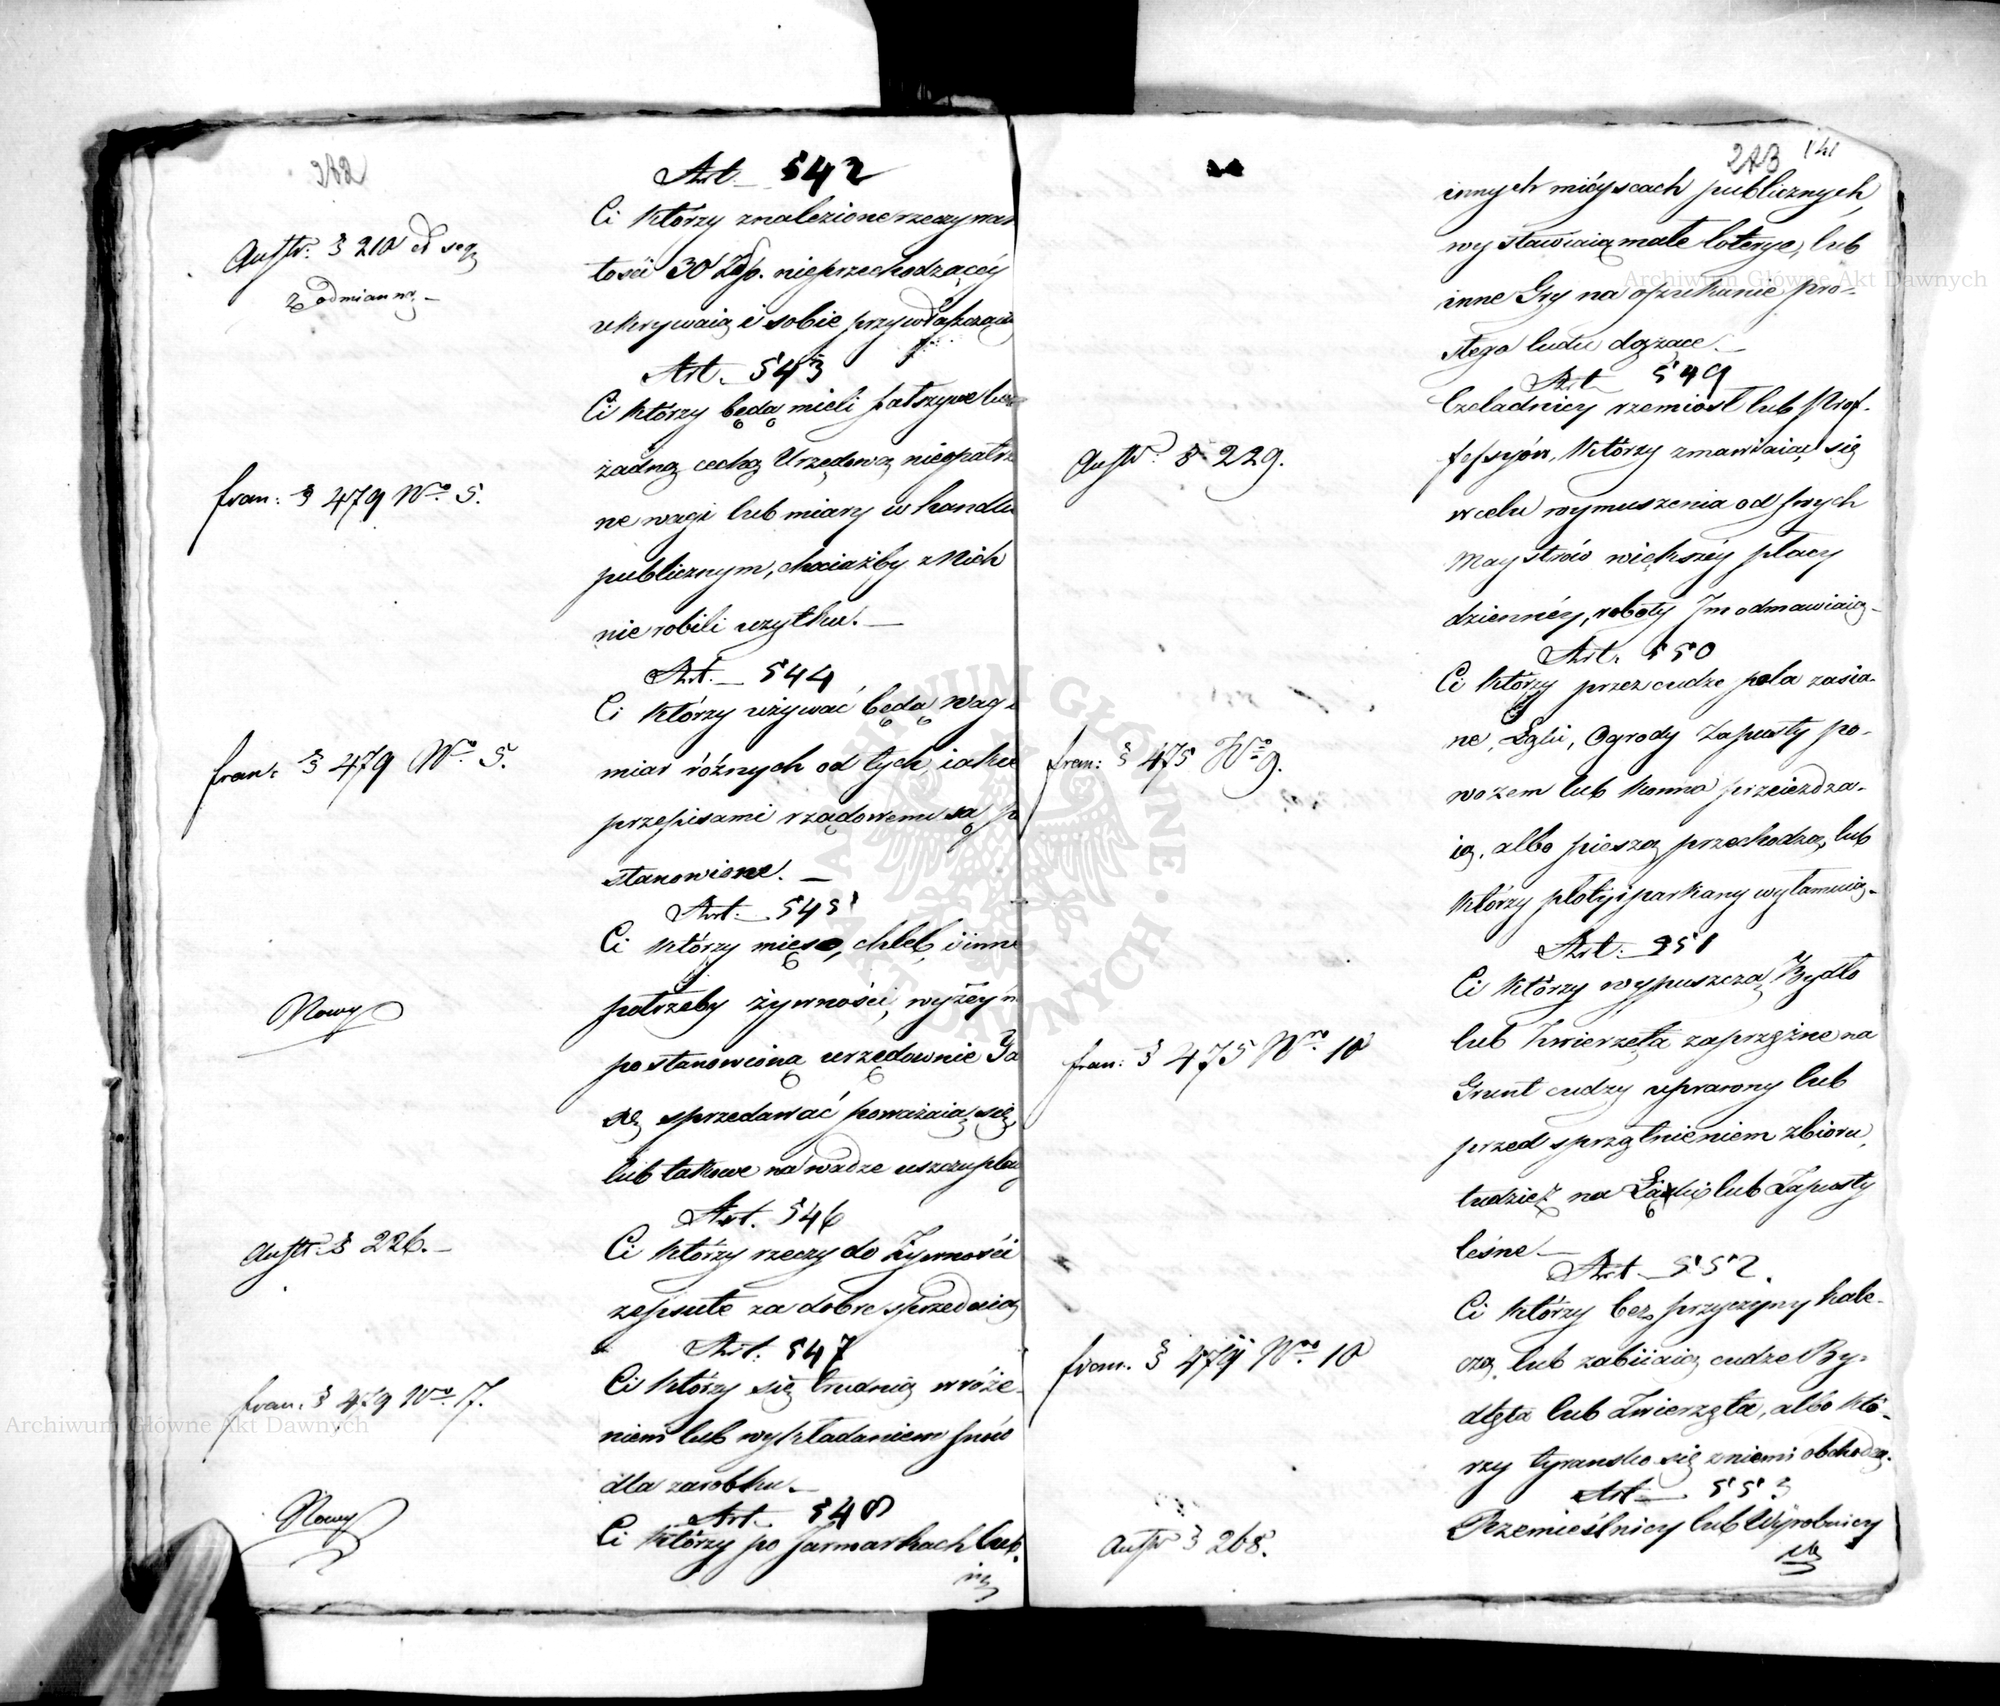 282
Art. 542
Austr. § 210 et seq
z odmianą
Ci którzy znalezione rzeczy war
tości 30 Złp. nieprzechodzącéy
ukrywaią i sobie przywłaszczaią
Art. 543
fran: § 479 Nro 5.
Ci którzy będą mieli fałszywe lub
żadną cechą Urzędową nieopatrzo
ne wagi lub miary w handlu
publicznym, chociażby z Nich
nie robili użytku.
Art. 544
fran: § 479 Nro 5.
Ci którzy używać będą wag i
miar różnych od tych, iakie
przepisami rządowemi są po
stanowione.
Art. 545
Nowy
Ci którzy mięso, chleb, i inne
potrzeby żywności, wyżéy n
postanowioną urzędownie Ta
xę sprzedawać poważaią się,
lub takowe na wadze uszczuplaią
Art. 546
Austr: § 226.
Ci którzy rzeczy do Żywności
zepsute za dobre sprzedaią
Art: 547
fran: § 479 Nro 7.
Ci którzy się trudnią wróże-
niem lub wykładaniem snów
dla zarobku.
Art. 548
Nowy
Ci którzy po Jarmarkach lub
in
283 141
innych mieyscach publicznych,
wystawiaią małe loterye, lub
inne Gry na oszukanie pro-
stego ludu dążące.
Art 549
Austr: § 229.
Czeladnicy rzemiosł lub Prof-
fessyów, którzy zmawiaią się
w celu wymuszenia od swych
Maystrów większéy płacy
dziennéy, roboty Im odmawiaią
Art. 550
fran: § 475 Nro 9.
Ci którzy przez cudze pola zasia-
ne, Łąki, Ogrody Zapusty po-
wozem lub konno przeieżdża-
ią, albo pieszo przechodzą, lub
którzy płoty i parkany wyłamuią
Art: 551
fran: § 475 Nro 10
Ci którzy wypuszczą Bydło
lub Zwierzęta zaprzężne na
Grunt cudzy uprawny lub
przed sprzątnieniem zbioru,
tudzież na Łąki lub Zapusty
leśne
Art 552.
fran: § 479 Nro 10
Ci którzy bez przyczyny kale-
czą lub zabiiaią cudze By-
dlęta lub Zwierzęta, albo któ-
rzy tyransko się z niemi obchodzą.
Art 553
Austr § 268.
Rzemieślnicy lub Wyrobnicy
Archiwum Główne Akt Dawnych
Archiwum Główne Akt Dawnych
ARCHIWUM GŁÓWNE AKT DAWNYCH